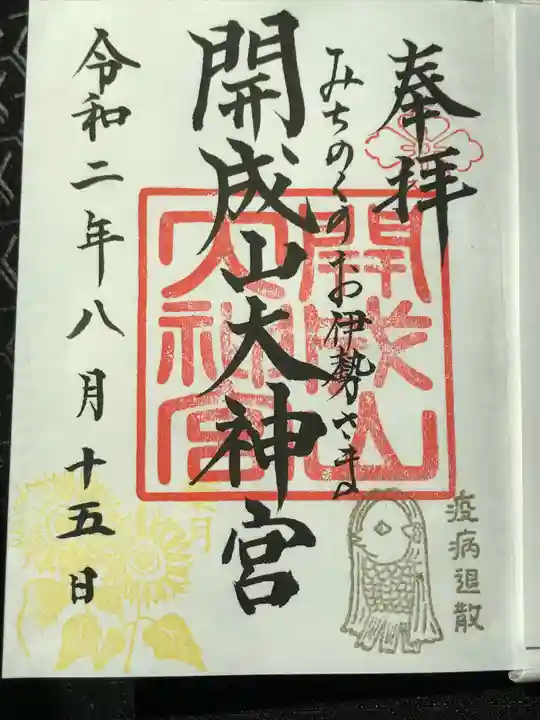 奉拝
みちのくのお伊勢さま
開成山大神宮
令和二年八月十五日
開成山
大神宮
疫病退散